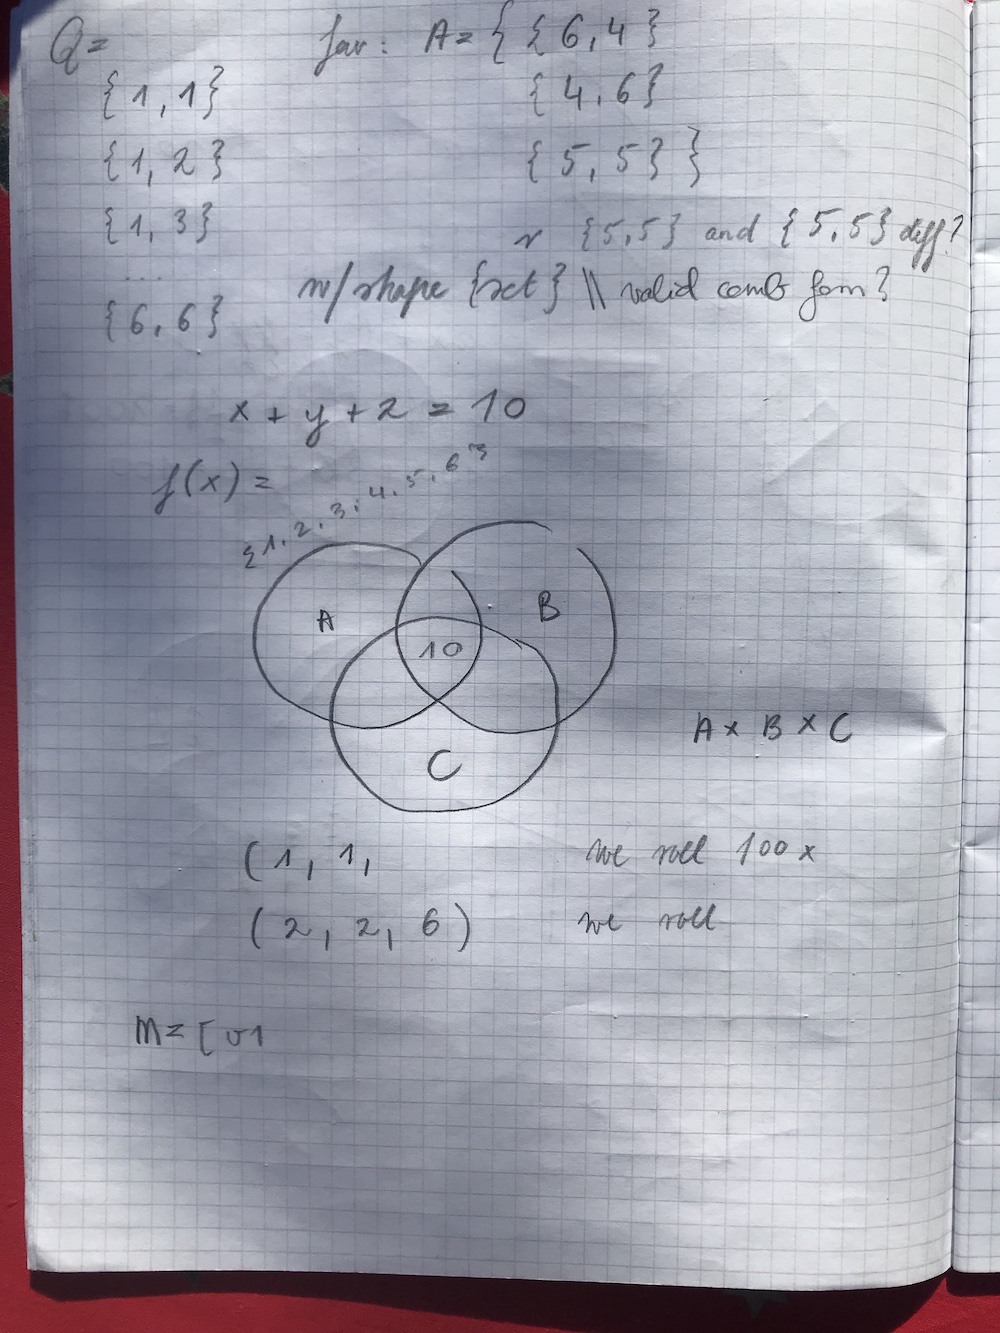 Q =
{1, 1}
{1, 2}
{1, 3}
....
{6, 6}
fav: A = { {6, 4}
{4, 6}
{5, 5} }
r {5,5} and {5,5} diff?
w/ shape {set} \\ valid comb form?
x + y + z = 10
f(x) =
{1, 2, 3, 4, 5, 6}
A
B
10
C
A x B x C
(1, 1,
we roll 100 x
(2, 2, 6)
we roll
M = [v1